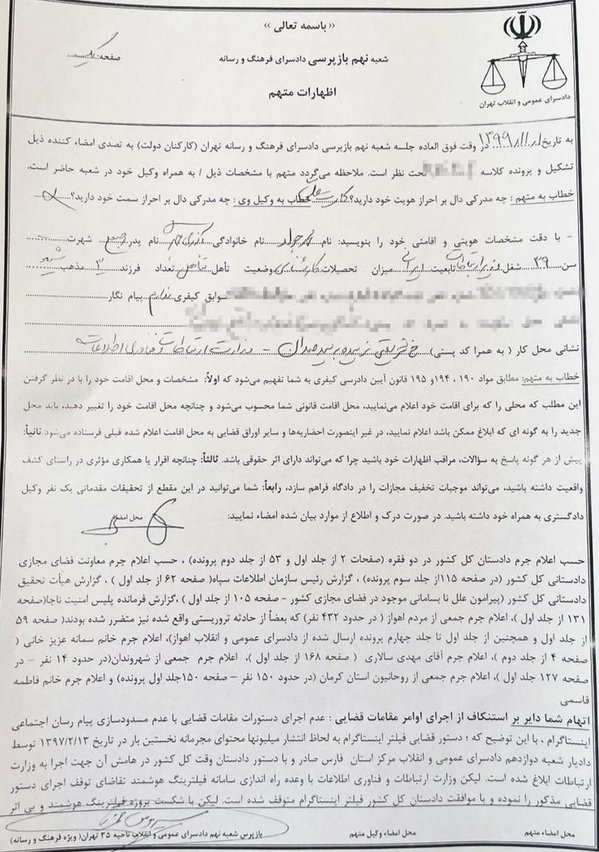 « باسمه تعالی »
شعبه نهم بازپرسی دادسرای فرهنگ و رسانه
صفحه: یک
اظهارات متهم
دادسرای عمومی و انقلاب تهران
به تاریخ ۱۳۹۹/۱۱/۱ در وقت فوق العاده جلسه شعبه نهم بازپرسی دادسرای فرهنگ و رسانه تهران (کارکنان دولت) به تصدی امضاء کننده ذیل
تشکیل و پرونده کلاسه تحت نظر است. ملاحظه می‌گردد متهم با مشخصات ذیل / به همراه وکیل خود در شعبه حاضر است.
خطاب به متهم: چه مدرکی دال بر احراز هویت خود دارید؟ کارت ملی خطاب به وکیل وی: چه مدرکی دال بر احراز سمت خود دارید؟
- با دقت مشخصات هویتی و اقامتی خود را بنویسید: نام محمدجواد نام خانوادگی نام پدر شهرت
سن ۳۹ شغل وزیر ارتباطات تابعیت ایرانی میزان تحصیلات کارشناسی وضعیت تأهل متأهل تعداد فرزند ۳ مذهب شیعه
سوابق کیفری ندارم پیام نگار
نشانی محل کار ( به همرا کد پستی) خ شریعتی نرسیده به پل سیدخندان - وزارت ارتباطات و فناوری اطلاعات
خطاب به متهم: مطابق مواد ۱۹۰ ، ۱۹۴ و ۱۹۵ قانون آیین دادرسی کیفری به شما تفهیم می‌شود که اولاً: مشخصات و محل اقامت خود را با در نظر گرفتن
این مطلب که محلی را که برای اقامت خود اعلام می‌نمایید، محل اقامت قانونی شما محسوب می‌شود و چنانچه محل اقامت خود را تغییر دهید، باید محل
جدید را به گونه ای که ابلاغ ممکن باشد اعلام نمایید، در غیر اینصورت احضاریه‌ها و سایر اوراق قضایی به محل اقامت اعلام شده قبلی فرستاده می‌شود ثانیاً:
پیش از هر گونه پاسخ به سؤالات، مراقب اظهارات خود باشید چرا که می‌تواند دارای اثر حقوقی باشد. ثالثاً: چنانچه اقرار یا همکاری مؤثری در راستای کشف
واقعیت داشته باشید، می‌تواند موجبات تخفیف مجازات را در دادگاه فراهم سازد، رابعاً: شما می‌توانید در این مقطع از تحقیقات مقدماتی یک نفر وکیل
دادگستری به همراه خود داشته باشید. در صورت درک و اطلاع از موارد بیان شده امضاء نمایید: محل امضاء
حسب اعلام جرم دادستان کل کشور در دو فقره (صفحات ۲ از جلد اول و ۵۳ از جلد دوم پرونده) ، حسب اعلام جرم معاونت فضای مجازی
دادستانی کل کشور (در صفحه ۱۱۵از جلد سوم پرونده) ، گزارش رئیس سازمان اطلاعات سپاه( صفحه ۶۲ از جلد اول ) ، گزارش هیأت تحقیق
دادستانی کل کشور (پیرامون علل نا بسامانی موجود در فضای مجازی کشور - صفحه ۱۰۵ از جلد اول) ،گزارش فرمانده پلیس امنیت ناجا(صفحه
۱۳۱ از جلد اول)، اعلام جرم جمعی از مردم اهواز ( در حدود ۴۳۲ نفر) که بعضاً از حادثه تروریستی واقع شده نیز متضرر شده بودند( صفحه ۵۹
از جلد اول و همچنین از جلد اول تا جلد چهارم پرونده ارسال شده از دادسرای عمومی و انقلاب اهواز)، اعلام جرم خانم سمانه عزیز خانی (
صفحه ۴ از جلد دوم )، اعلام جرم آقای مهدی سالاری ( صفحه ۱۶۸ از جلد اول )، اعلام جرم جمعی از شهروندان(در حدود ۱۴ نفر – در
صفحه ۱۲۷ جلد اول )، اعلام جرم جمعی از روحانیون استان کرمان (در حدود ۱۵۰ نفر – صفحه ۱۵۰جلد اول پرونده) و اعلام جرم خانم فاطمه
قاسمی
اتهام شما دایر بر استنکاف از اجرای اوامر مقامات قضایی : عدم اجرای دستورات مقامات قضایی با عدم مسدودسازی پیام رسان اجتماعی
اینستاگرام ، با این توضیح که ؛ دستور قضایی فیلتر اینستاگرام به لحاظ انتشار میلیونها محتوای مجرمانه نخستین بار در تاریخ ۱۳۹۷/۲/۱۳ توسط
دادیار شعبه دوازدهم دادسرای عمومی و انقلاب مرکز استان فارس صادر و با دستور دادستان وقت کل کشور در هامش آن جهت اجرا به وزارت
ارتباطات ابلاغ شده است. لیکن وزارت ارتباطات و فناوری اطلاعات با وعده راه اندازی سامانه فیلترینگ هوشمند تقاضای توقف اجرای دستور
قضایی مذکور را نموده و با موافقت دادستان کل کشور فیلتر اینستاگرام متوقف شده است. لیکن با شکست پروژه فیلترینگ هوشمند و بی اثر
محل امضاء متهم
محل امضاء وکیل متهم
بازپرس شعبه نهم دادسرای عمومی و انقلاب ناحیه ۳۵ تهران( ویژه فرهنگ و رسانه)